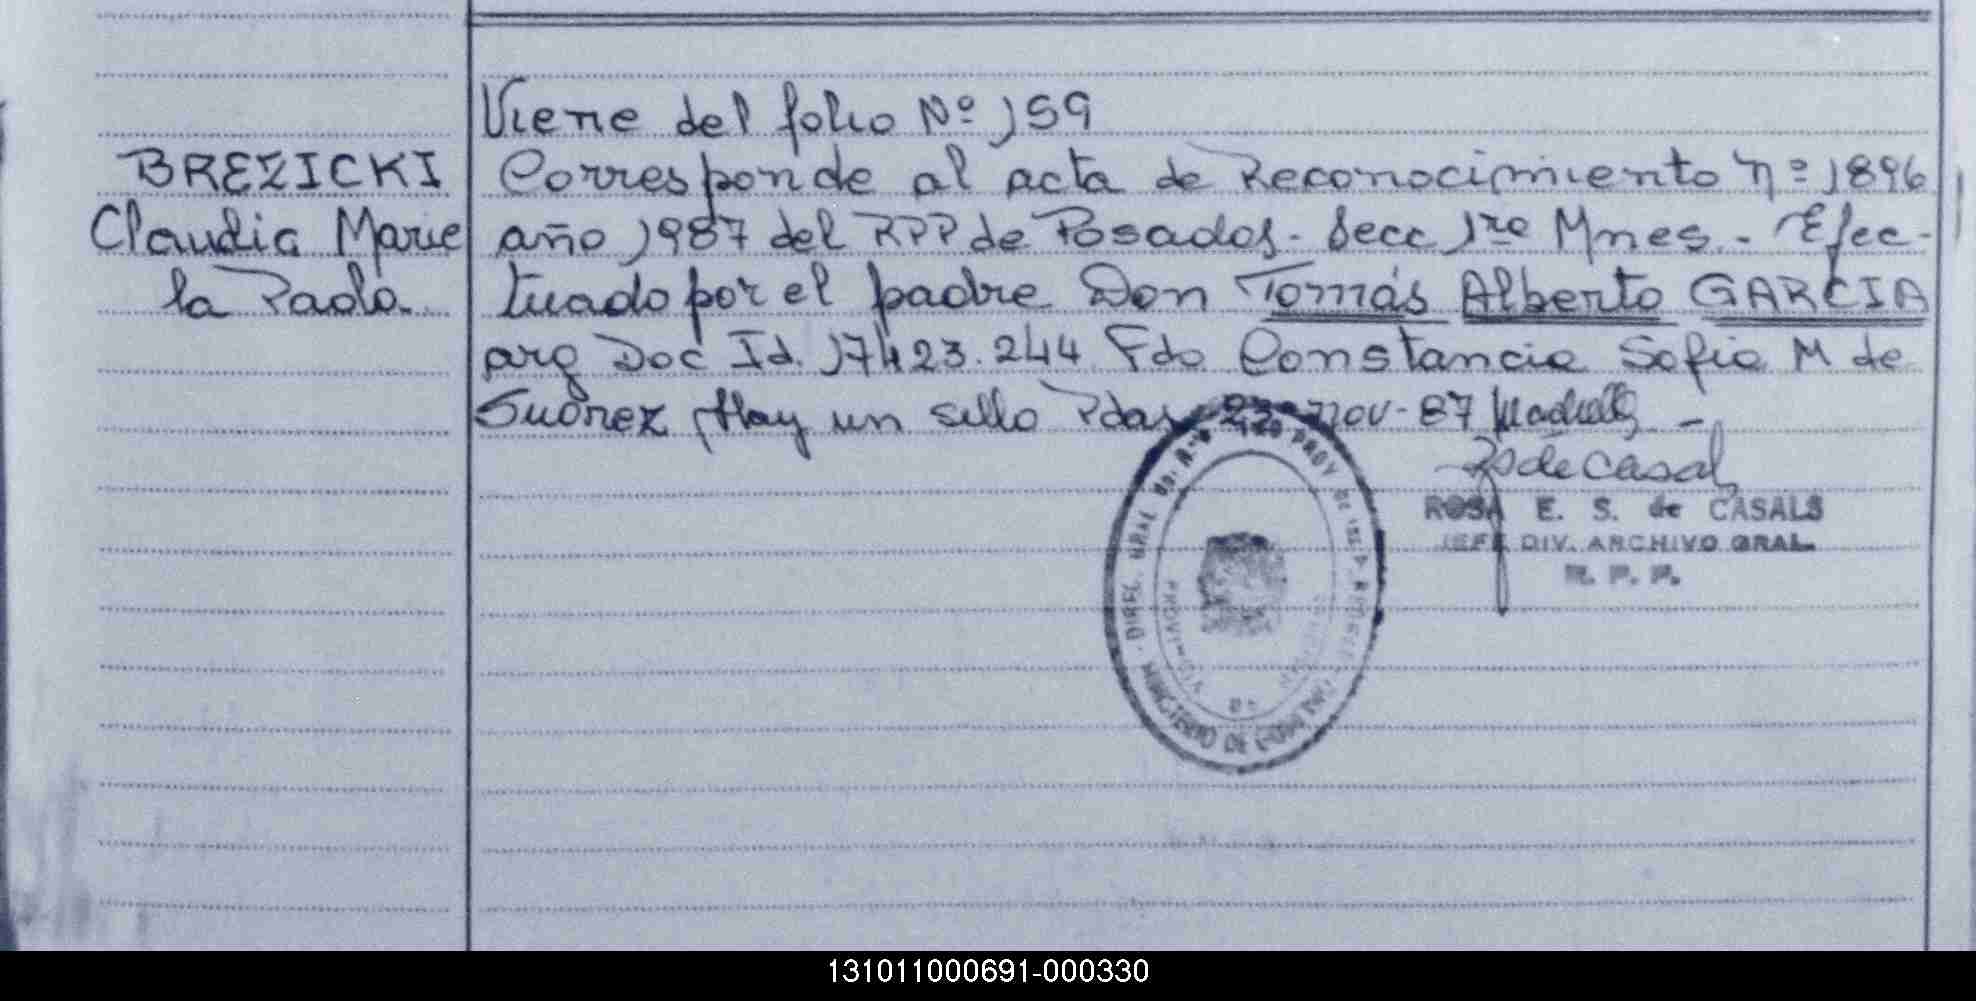 Viene del folio Nº 159
BREZICKI
Claudia Marie
la Paola.
Corresponde al acta de Reconocimiento nº 1896
año 1987 del RPP de Posadas. Secc 1ra Mnes. - Efec-
tuado por el padre Don Tomás Alberto GARCIA
arg Doc Id. 17423.244 Fdo Constancia Sofia M de
Suárez, Hay un sello Pdas 23 nov - 87
R de Casal
ROSA E. S. de CASALS
JEFE DIV. ARCHIVO GRAL.
R. P. P.
DIREC. GRAL PROV DE
MINISTERIO DE GOBIERNO
PROVINCIA DE MISIONES
131011000691-000330